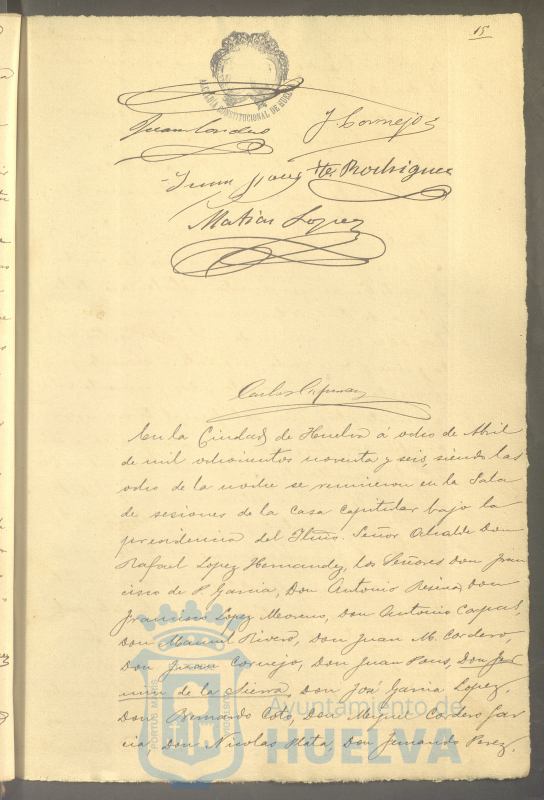 15
ALCALDIA CONSTITUCIONAL DE HUELVA
Juan Cordero J Cornejo
Juan Pons Fe Rodriguez
Matias Lopez
Carlos
En la Ciudad de Huelva á ocho de Abril
de mil ochocientos noventa y seis, siendo las
ocho de la noche se reunieron en la Sala
de sesiones de la casa capitular bajo la
presidencia del Iltmo. Señor Alcalde Don
Rafael Lopez Hernandez, los Señores don Fran
cisco de P. Garcia, Don Antonio Resina, Don
Francisco Lopez Moreno, Don Antonio
Don Manuel Rivero, Don Juan M. Cordero,
Don Juan Cornejo, Don Juan Pons, Don
de la Sierra, Don José Garcia Lopez,
Don Bernardo Coto, Don Miguel Cordero Gar
cia, don Nicolas Plata, Don Fernando Perez,
PORTUS MARIS
Ayuntamiento de
HUELVA